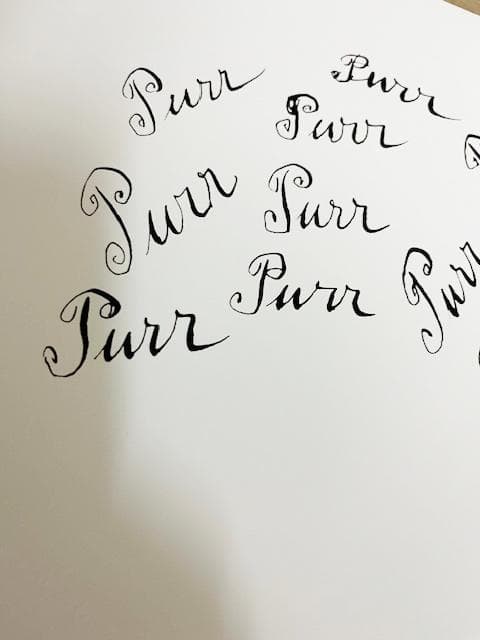 Purr
Purr
Purr
Purr
Purr
Purr
Purr
Purr